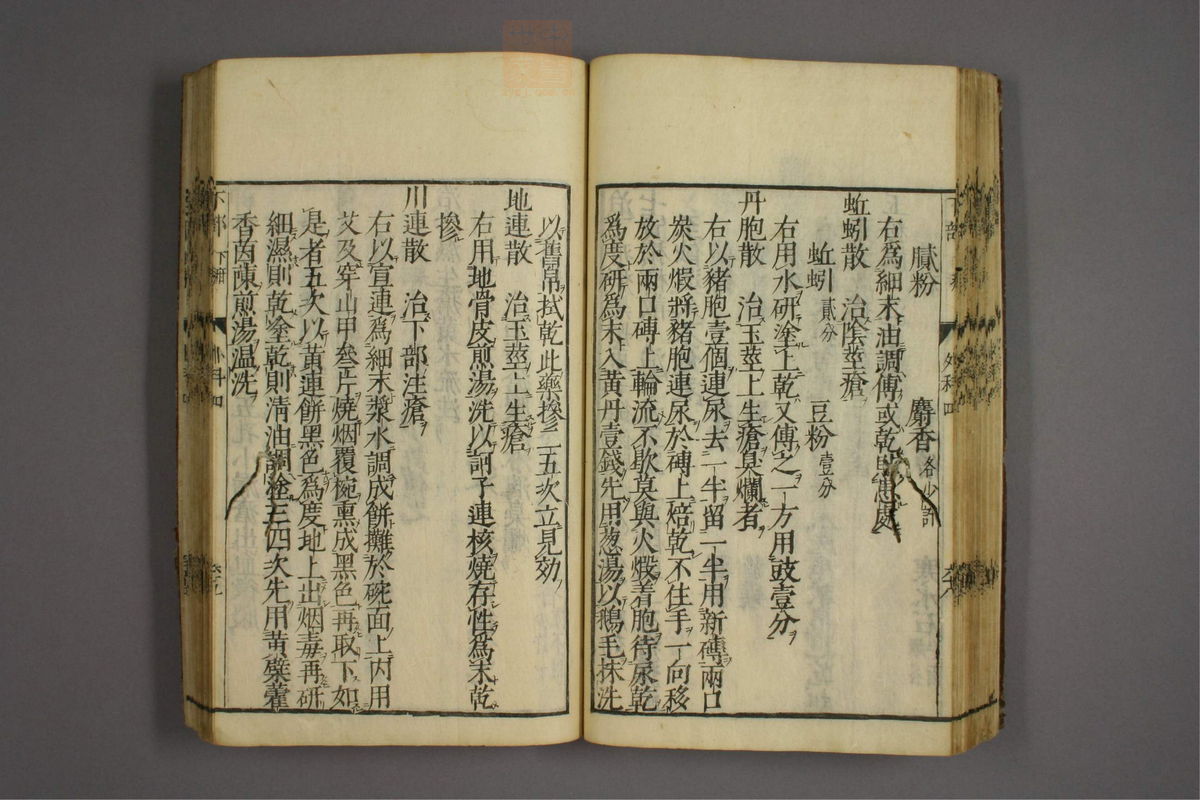 膩粉 麝香各少許
右爲細末油調傅或乾患處
蚯蚓散 治陰莖瘡
蚯蚓貳分 豆粉壹分
右用水研塗上乾又傅之一方用豉壹分
丹胞散 治玉莖上生瘡臭爛者
右以豬胞壹個連尿去一半留一半用新磚兩口
炭火煅將豬胞連尿於磚上焙乾不住手一向移
放於兩口磚上輪流不歇莫與火煅着胞待尿乾
爲度研爲末入黃丹壹錢先用葱湯以鵝毛抹洗
以舊帛拭乾此藥摻二五次立見効
地連散 治玉莖上生瘡
右用地骨皮煎湯洗以訶子連核燒存性爲末乾
摻
川連散 治下部注瘡
右以宣連爲細末漿水調成餅攤於碗面上内用
艾及穿山甲叁片燒烟覆椀熏成黑色再取下如
是者五次以黃連餅黑色爲度地上出烟毒再研
細濕則乾塗乾則清油調塗三四次先用黃蘗藿
香茵蔯煎湯温洗